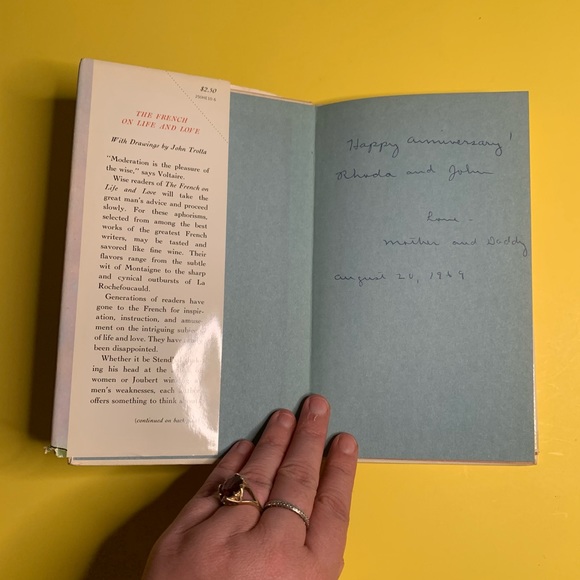 $2.50
THE FRENCH
ON LIFE AND LOVE
With Drawings by John Trotta
"Moderation is the pleasure of
the wise," says Voltaire.
Wise readers of The French on
Life and Love will take the
great man's advice and proceed
slowly. For these aphorisms,
selected from among the best
works of the greatest French
writers, may be tasted and
savored like fine wine. Their
flavors range from the subtle
wit of Montaigne to the sharp
and cynical outbursts of La
Rochefoucauld.
Generations of readers have
gone to the French for inspir-
ation, instruction, and
ment on the intriguing
of life and love. They have
been disappointed.
Whether it be
ing his head at the
women or Joubert
men's weaknesses, each
offers something to think
(continued on back
Happy Anniversary!
Rhoda and John
Love -
Mother and Daddy
August 20, 1969